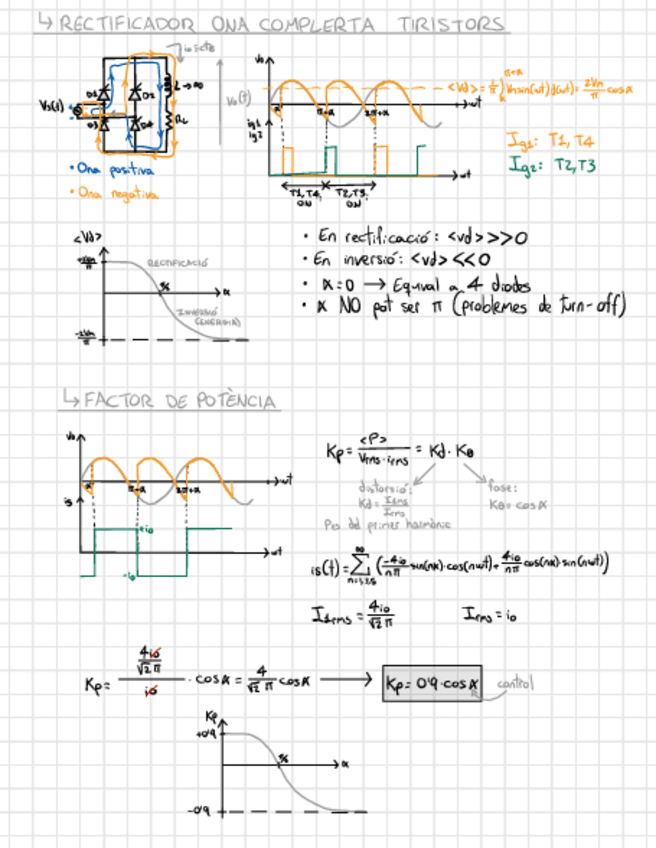 ↳ RECTIFICADOR ONA COMPLERTA TIRISTORS
io = cte
Vs(t)
D1
D2
D3
D4
L→∞
RL
Vo(t)
• Ona positiva
• Ona negativa
Vo
<Vd> = 1/π ∫ Vm sin(wt) d(wt) = 2Vm/π cos α
π+α
α
wt
α
π+α
2π+α
ig1
ig2
wt
T1,T4 ON
T2,T3 ON
Ig1: T1, T4
Ig2: T2, T3
<Vd>
+2Vm/π
RECTIFICACIÓ
α
INVERSIÓ
(ENERGIA)
-2Vm/π
• En rectificació: <vd> >>> 0
• En inversió: <vd> << 0
• α=0 → Equival a 4 diodes
• α NO pot ser π (problemes de turn-off)
↳ FACTOR DE POTÈNCIA
Vo
wt
α
π+α
2π+α
is
+io
-io
wt
Kp = <P> / Vrms·irms = Kd · Kθ
distorsió:
Kd = I1rms / Irms
Pes del primer harmònic
fase:
Kθ = cos α
is(t) = ∑ n=1,3,5 ∞ (-4io/nπ sin(nα)·cos(nωt) + 4io/nπ cos(nα)·sin(nωt))
I1rms = 4io/√2 π
Irms = io
Kp = (4io/√2 π) / io · cos α = 4/√2 π cos α → Kp = 0'9 · cos α
control
Kp
+0'9
α
-0'9